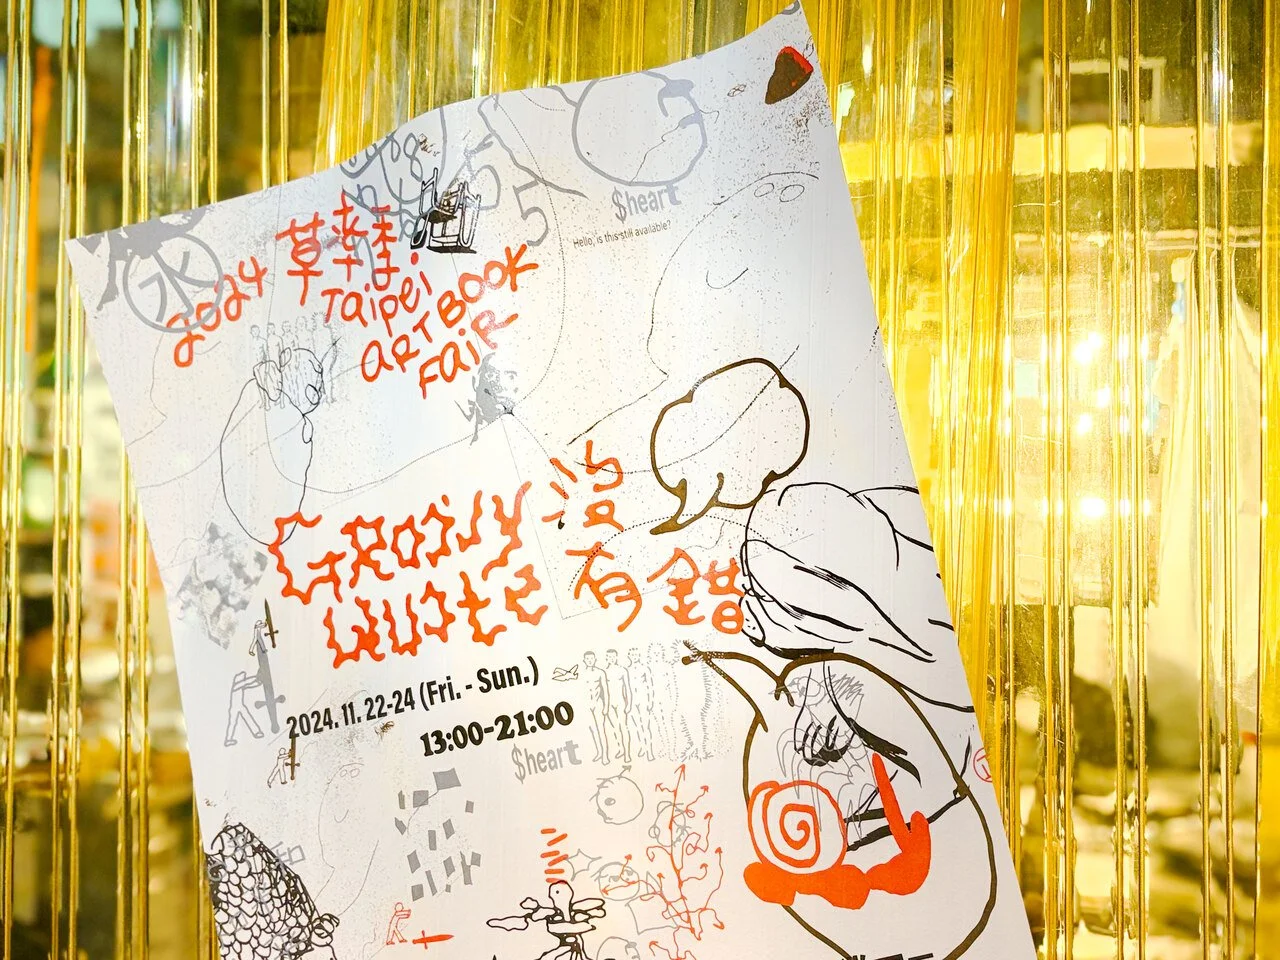 $heart
Hello, is this still available?
水
5
2024 草率季
Taipei
ART BOOK
FAIR
GRAiNY 當
QUOtE 有錯
2024. 11. 22-24 (Fri. - Sun.)
13:00-21:00
$heart